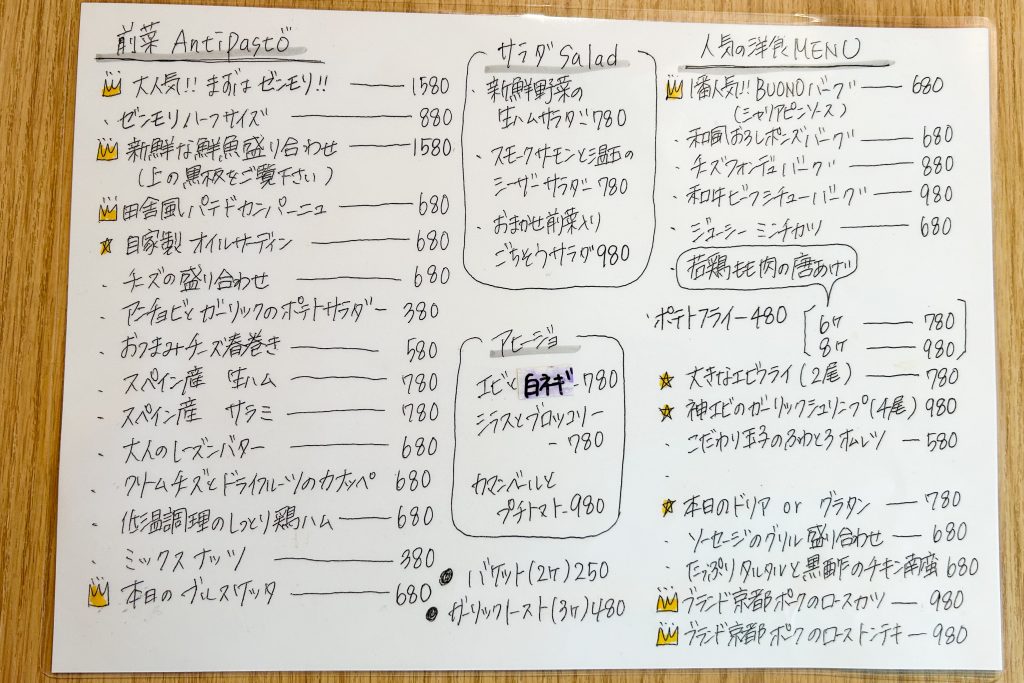 前菜 Antipasto
大人気!! まずは ゼンモリ!! 1580
・ゼンモリハーフサイズ 880
新鮮な鮮魚盛り合わせ 1580
(上の黒板をご覧下さい)
田舎風パテドカンパーニュ 680
自家製 オイルサーディン 680
チーズの盛り合わせ 680
・アンチョビとガーリックのポテトサラダー 380
・おつまみチーズ春巻き 580
・スペイン産 生ハム 780
・スペイン産 サラミ 780
・大人のレーズンバター 680
・クリームチーズとドライフルーツのカナッペ 680
・低温調理のしっとり鶏ハム 680
・ミックスナッツ 380
本日のブルスケッタ 680
サラダ Salad
・新鮮野菜の
生ハムサラダー 780
・スモークサーモンと温玉の
シーザーサラダー 780
・おまかせ前菜入り
ごちそうサラダ 980
アヒージョ
エビと白ネギ 780
シラスとブロッコリー
- 780
カマンベールと
プチトマト 980
バゲット(2ヶ) 250
ガーリックトースト(3ヶ) 480
人気の洋食 MENU
1番人気!! BUONOバーグ 680
(シャリアピンソース)
・和風おろしポーズバーグ 680
・チーズフォンデュバーグ 880
・和牛ビーフシチューバーグ 980
・ジューシー ミンチカツ 680
・若鶏もも肉の唐あげ
6ヶ 780
8ヶ 980
・ポテトフライー 480
大きなエビフライ(2尾) 780
神エビのガーリックシュリンプ(4尾) 980
・こだわり玉子のふわとろオムレツ 580
本日のドリア or グラタン 780
・ソーセージのグリル盛り合わせ 680
・たっぷりタルタルと黒酢のチキン南蛮 680
ブランド京都ポークのロースカツ 980
ブランド京都ポークのローストンテキー 980